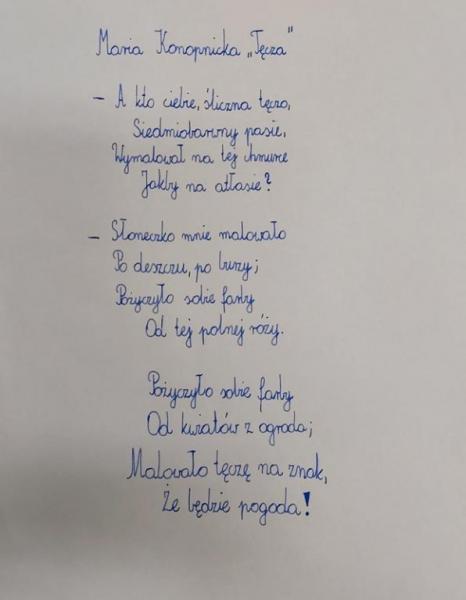 Maria Konopnicka „Tęcza"
– A kto ciebie, śliczna tęczo,
Siedmiobarwny pasie,
Wymalował na tej chmurce
Jakby na atłasie?
– Słoneczko mnie malowało
Po deszczu, po burzy;
Pożyczyło sobie farby
Od tej polnej róży.
Pożyczyło sobie farby
Od kwiatów z ogroda;
Malowało tęczę na znak,
Że będzie pogoda!